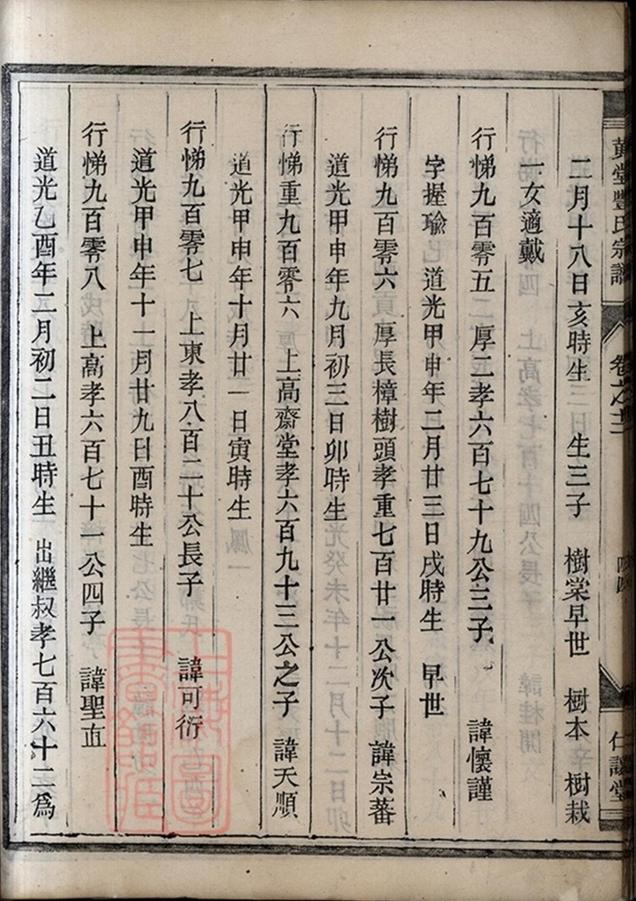 黃堂豐氏宗譜
卷之
仁讓堂
二月十八日亥時生 生三子 樹棠早世 樹本 樹栽
一女適戴
行悌九百零五 厚二孝六百七十九公三子 諱懷謹
字握瑜 道光甲申年二月廿三日戌時生 早世
行悌九百零六 厚長樟樹頭孝重七百廿一公次子 諱宗蕃
道光甲申年九月初三日卯時生
行悌重九百零六 上高齋堂孝六百九十三公之子 諱天順
道光甲申年十月廿一日寅時生
行悌九百零七 上東孝八百二十公長子 諱可衍
道光甲申年十一月廿九日酉時生
行悌九百零八 上高孝六百七十一公四子 諱聖直
道光乙酉年二月初二日丑時生 出繼叔孝七百六十二為